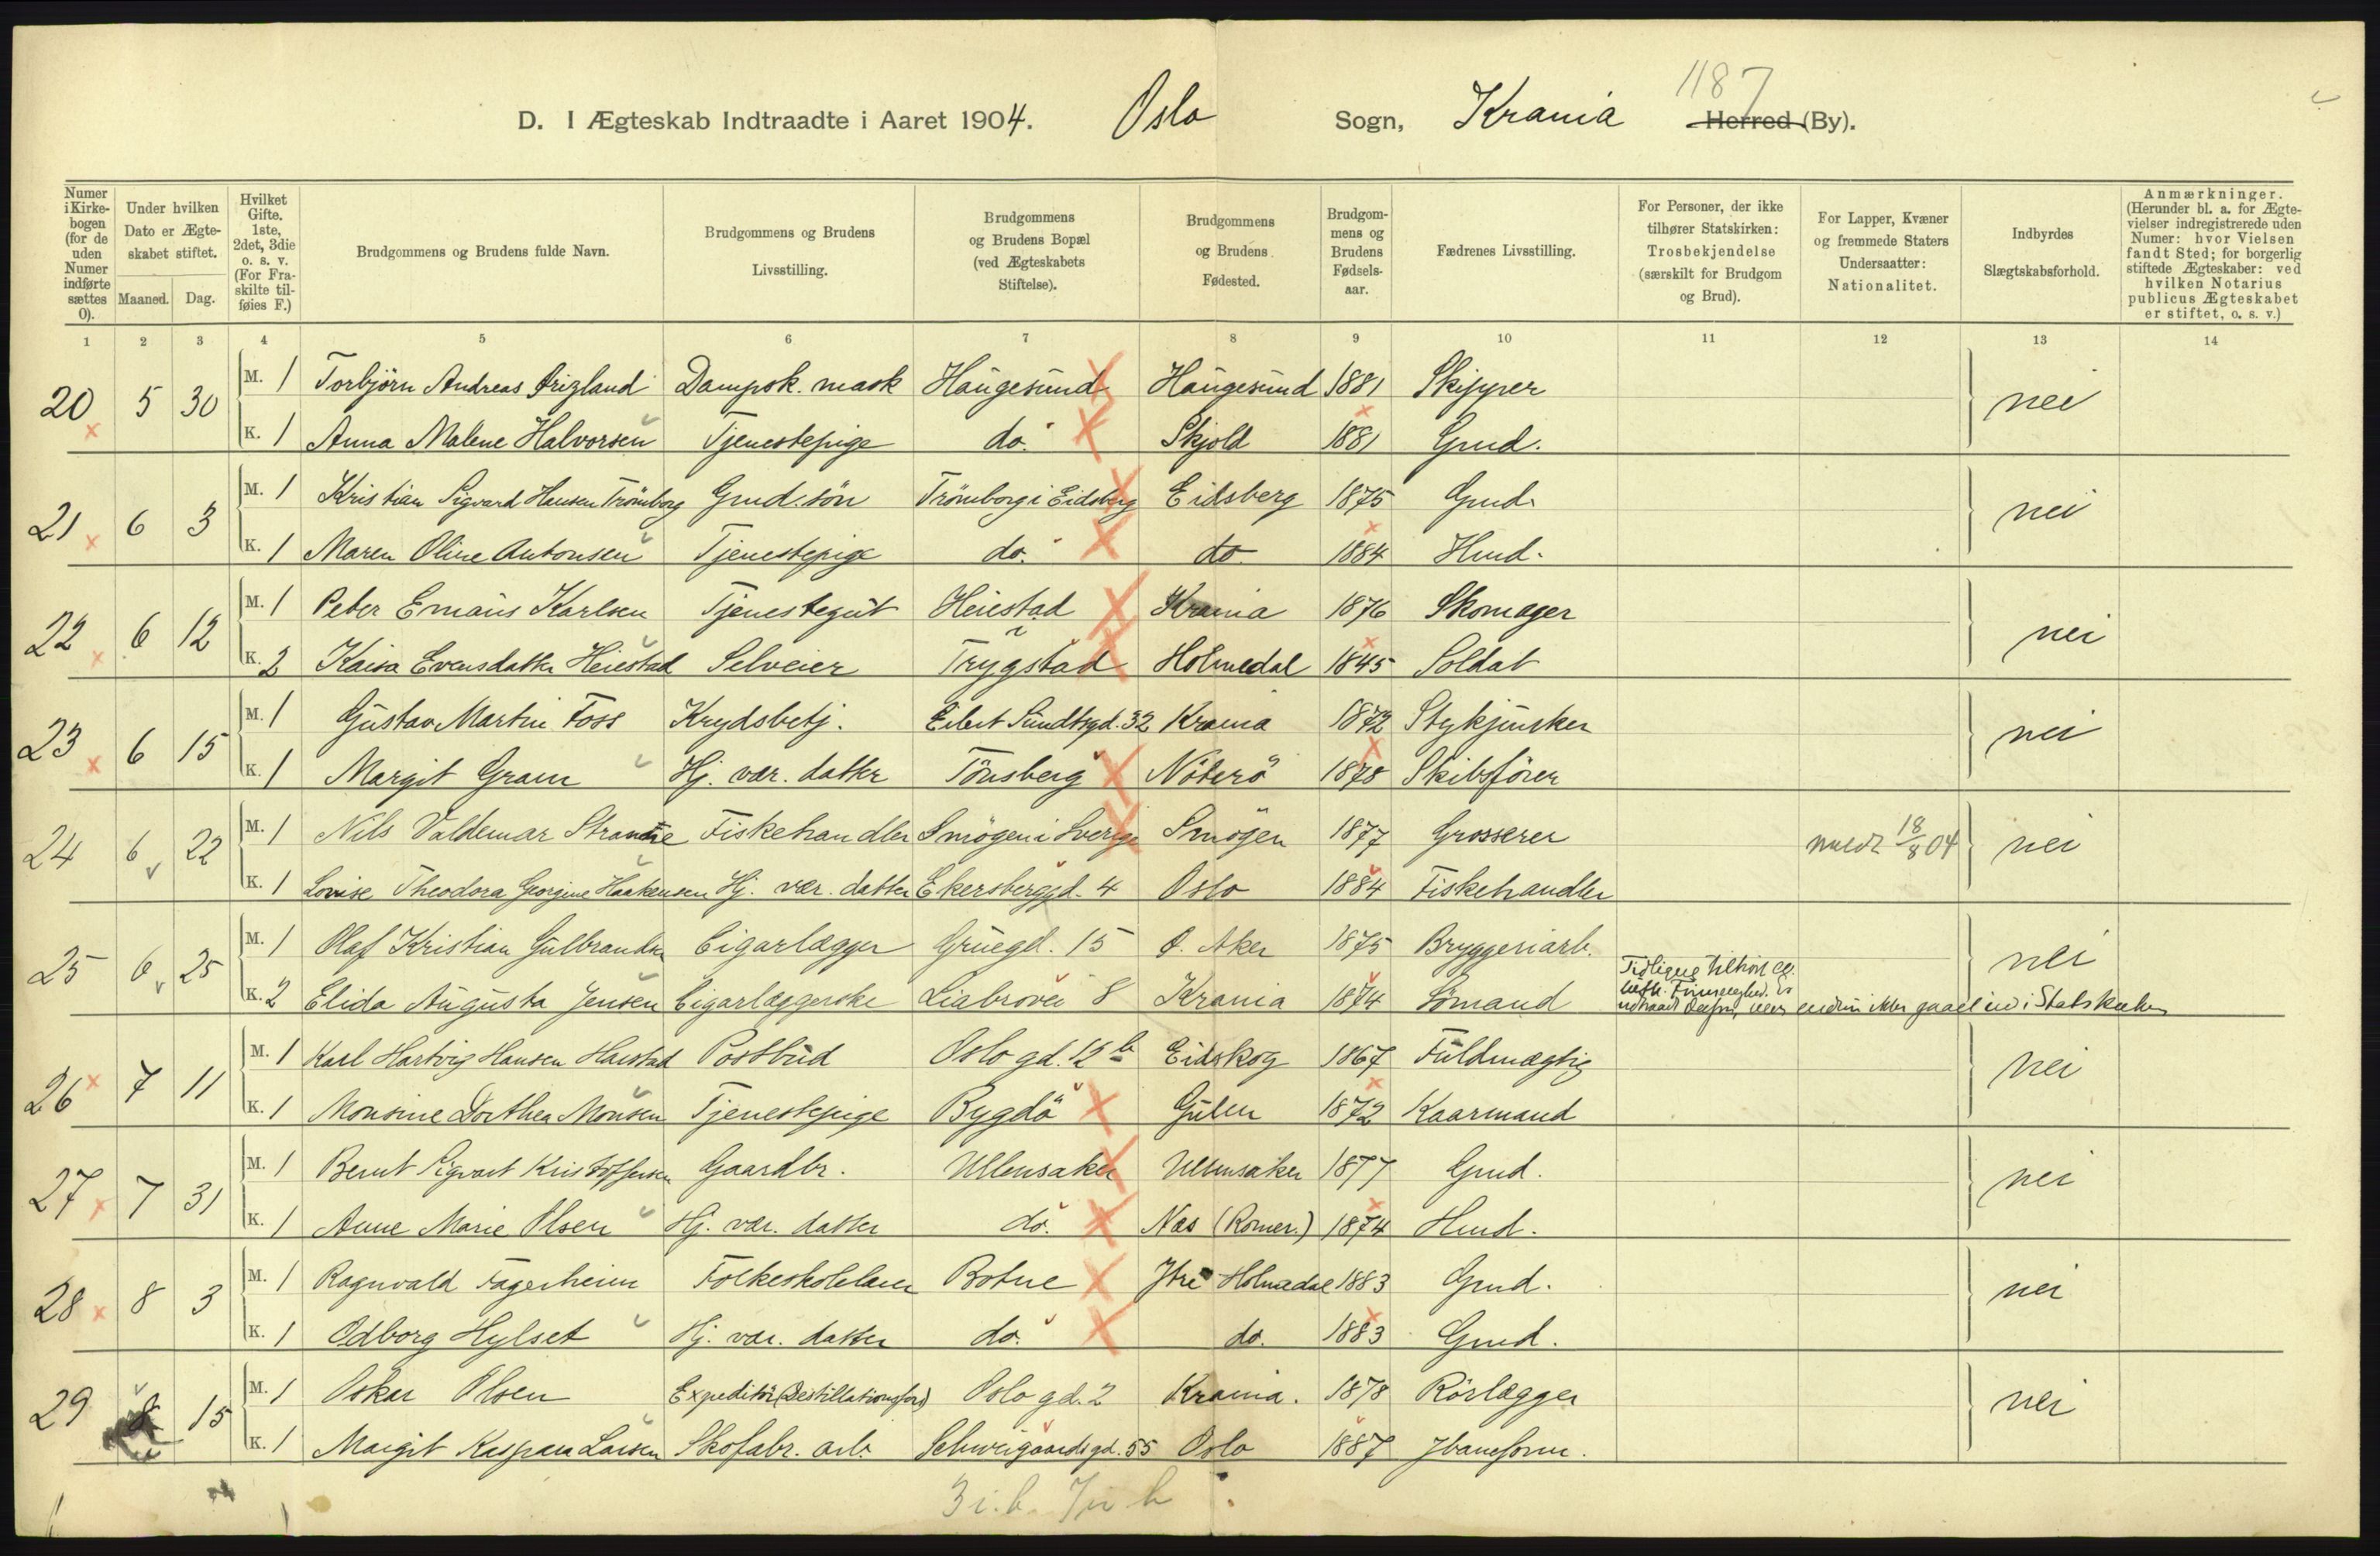 1187
D. I Ægteskab Indtraadte i Aaret 1904. Oslo Sogn, Krania Herred (By).
Numer i Kirkebogen (for de uden Numer indførte sættes 0). | Under hvilken Dato er Ægteskabet stiftet. Maaned. Dag. | Hvilket Gifte. 1ste, 2det, 3die o. s. v. (For Fraskilte tilføies F.) | Brudgommens og Brudens fulde Navn. | Brudgommens og Brudens Livsstilling. | Brudgommens og Brudens Bopæl (ved Ægteskabets Stiftelse). | Brudgommens og Brudens Fødested. | Brudgommens og Brudens Fødselsaar. | Fædrenes Livsstilling. | For Personer, der ikke tilhører Statskirken: Trosbekjendelse (særskilt for Brudgom og Brud). | For Lapper, Kvæner og fremmede Staters Undersaatter: Nationalitet. | Indbyrdes Slægtskabsforhold. | Anmærkninger. (Herunder bl. a. for Ægtevielser indregistrerede uden Numer: hvor Vielsen fandt Sted; for borgerlig stiftede Ægteskaber: ved hvilken Notarius publicus Ægteskabet er stiftet, o. s. v.)
1 2 3 4 5 6 7 8 9 10 11 12 13 14
20 5 30 M. 1 Torbjörn Andreas Dampsk. mask Haugesund Haugesund 1881 Skipper nei
K. 1 Anna Malene Halvorsen Tjenestepige do. Skjold 1881 Grud.
21 6 3 M. 1 Kristian Sigvard Hansen Trömborg Grud. sön Trömborg i Eidsberg Eidsberg 1875 Grud. nei
K. 1 Maren Oline Antonsen Tjenestepige do. do 1884 Hmd.
22 6 12 M. 1 Peter Emaus Karlsen Tjenestegut Heiestad Krania 1876 Skomager nei
K. 2 Kaisa Evensdatter Heiestad Selveier i Trygstad Holmedal 1845 Soldat
23 6 15 M. 1 Gustav Martin Foss Krydsbetj. Eilert Sundtsgd. 32 Krania 1872 Stykjunker nei
K. 1 Margit Gram Hj. vær. datter Tönsberg Nöterö 1878 Skibsförer
24 6 22 M. 1 Nils Valdemar Fiskehandler Smögen i Sverige Smögen 1877 Grosserer 18/8 04 nei
K. 1 Lovise Theodora Georgine Haakensen Hj. vær. datter Ekersberggd. 4 Oslo 1884 Fiskehandler
25 6 25 M. 1 Olaf Kristian Gulbrandsen Cigarlægger Gruegd. 15 Ø. Aker 1875 Bryggeriarb. nei
K. 2 Elida Augusta Jensen Cigarlæggerske Liabroveien 8 Krania 1874 Sömand Tidligere tilhört
men endnu ikke gaaet ind i Statskirken
26 7 11 M. 1 Karl Hartvig Hansen Postbud Oslo gd. 12 b Eidskog 1867 Fuldmægtig nei
K. 1 Monsine Dorthea Monsen Tjenestepige Bygdö Gulen 1872 Kaarmand
27 7 31 M. 1 Bernt Sigvart Kristoffersen Gaardbr. Ullensaker Ullensaker 1877 Grud. nei
K. 1 Anne Marie Olsen Hj. vær. datter do. Næs (Romer.) 1874 Hmd.
28 8 3 M. 1 Ragnvald Fagerheim Folkeskolelærer Botne Ytre Holmedal 1883 Grud. nei
K. 1 Odborg Hylset Hj. vær. datter do. do. 1883 Grud.
29 8 15 M. 1 Oskar Olsen Expeditör (Destillationsforr) Oslo gd. 2 Krania. 1878 Rörlægger nei
K. 1 Margit Kaspara Larsen Skofabr. arb. Schweigaardsgd. 55 Oslo 1887 Jbaneform.
3 i. b. 7 u b